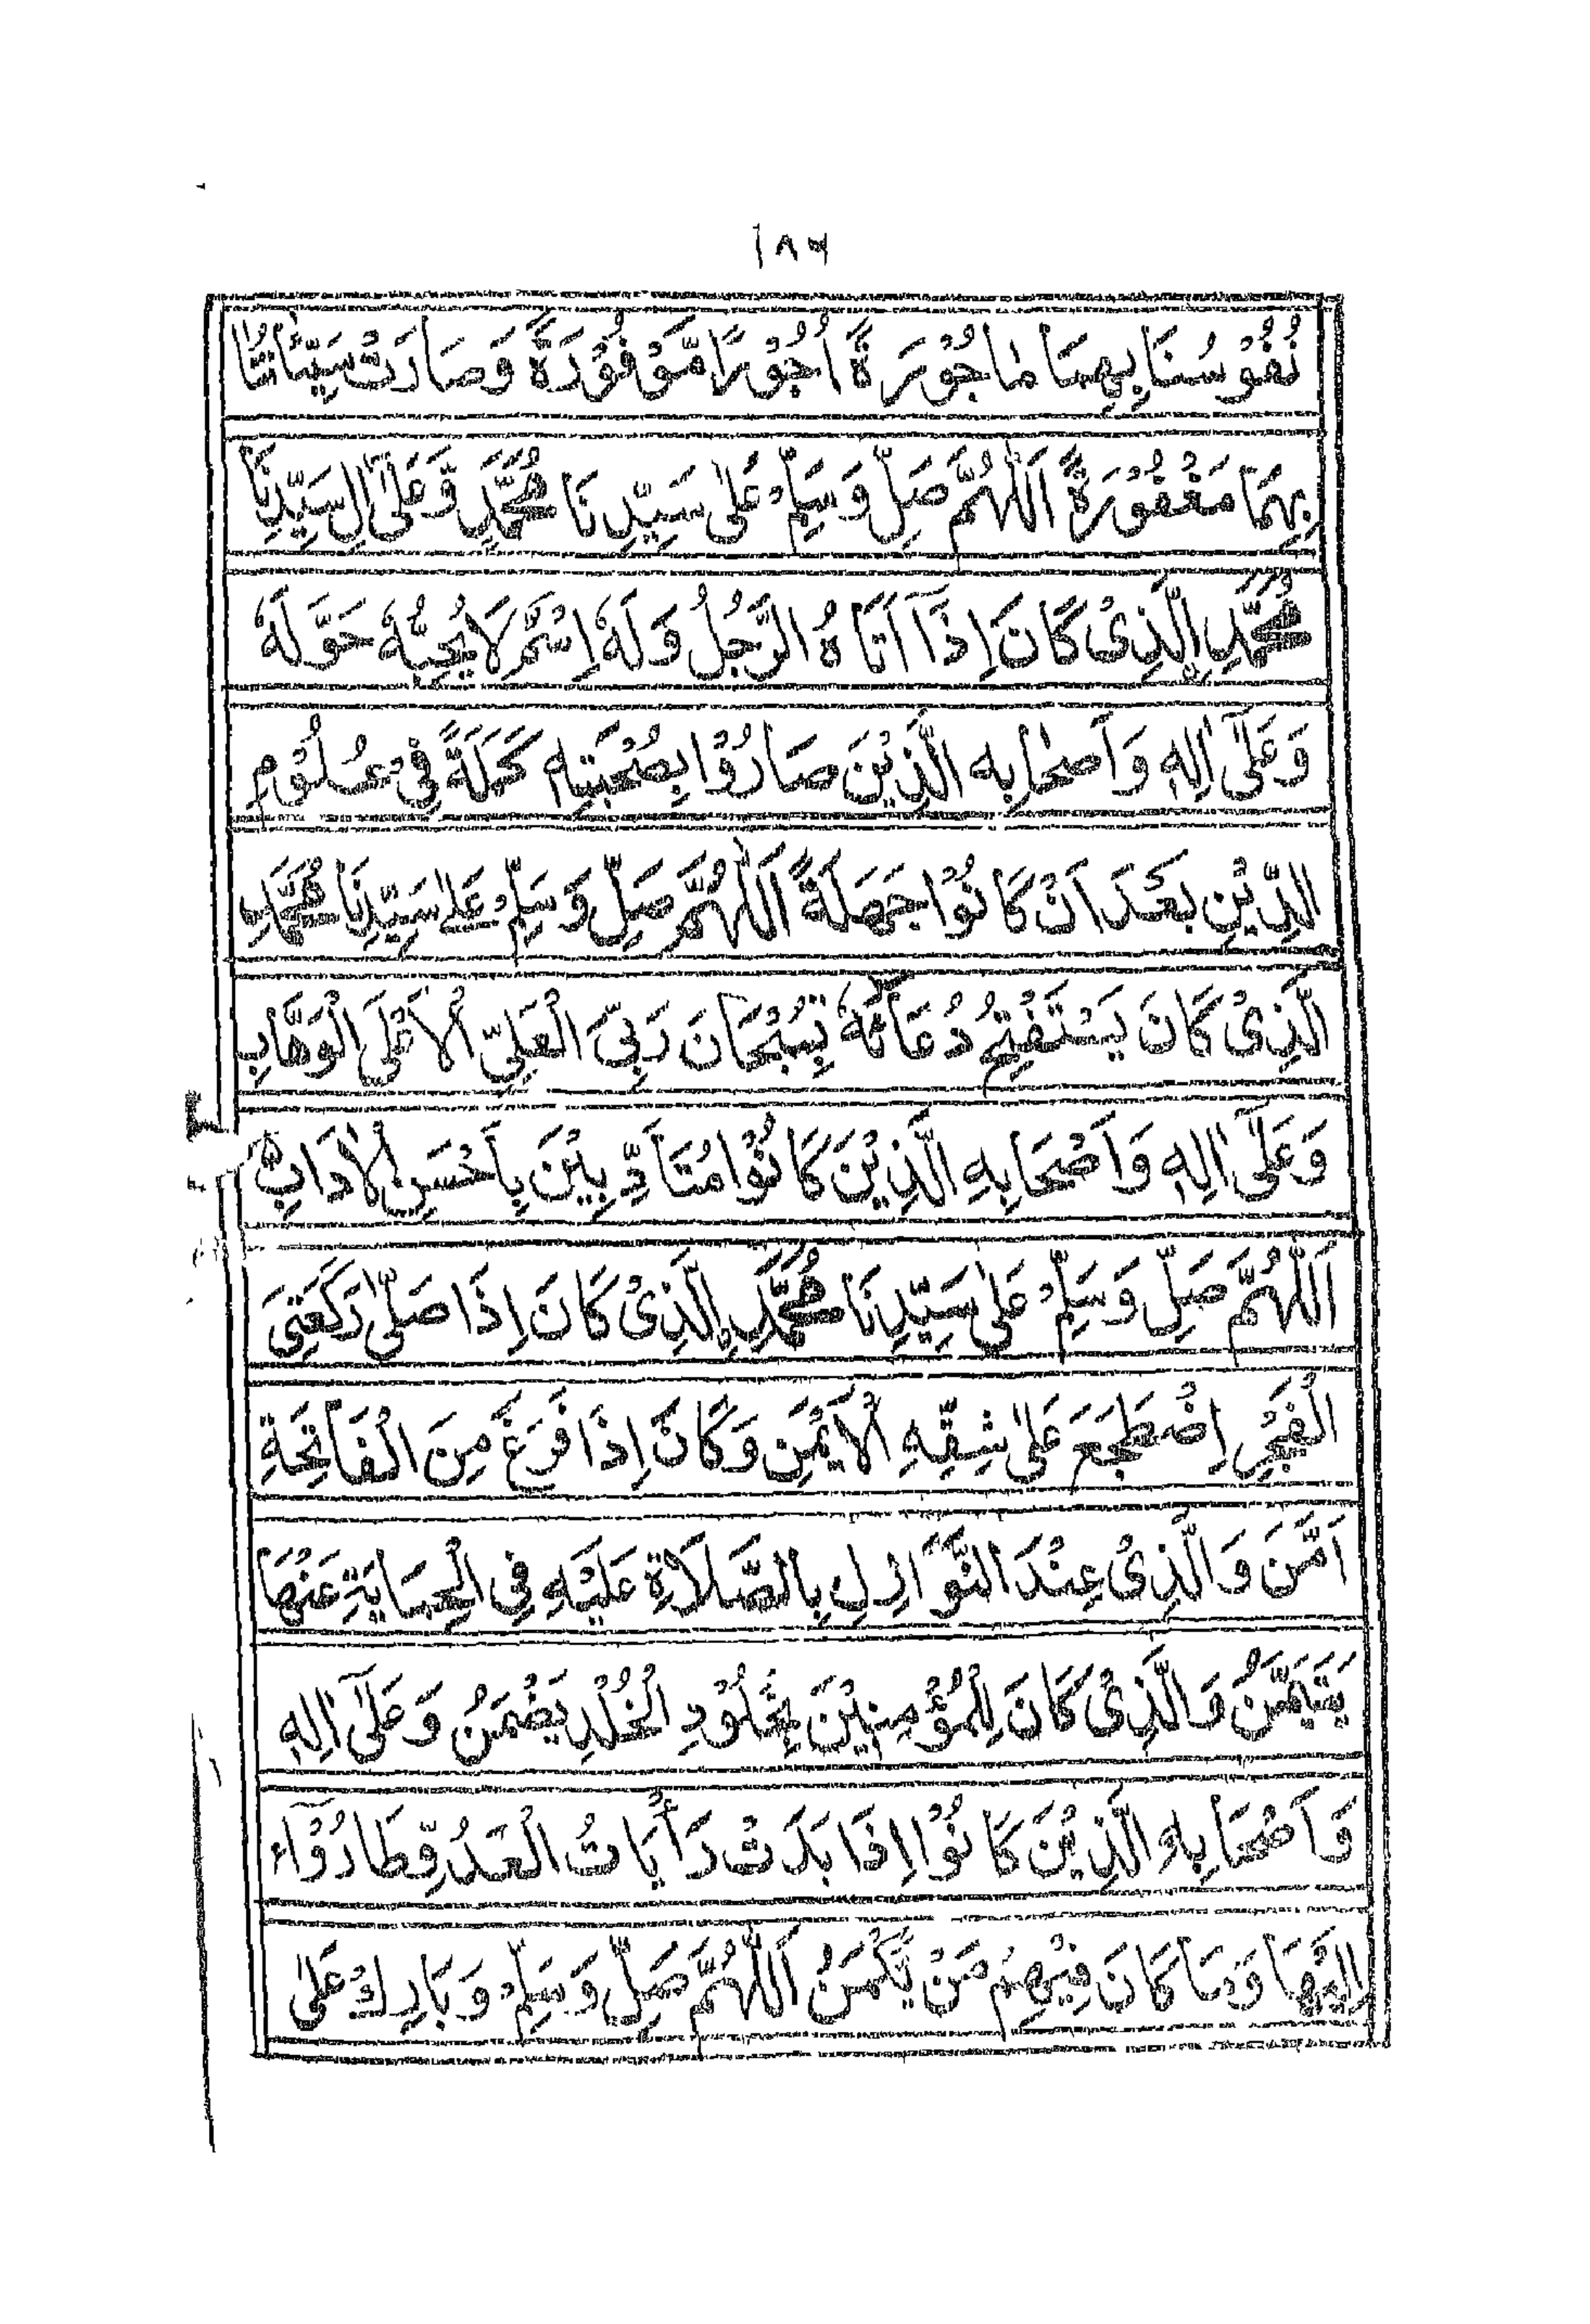 ١٨٦
نُفُوْسُنَا بِهِمَا مَاجُوْرَةً اُجُوْرًا مَّوْفُوْرَةً وَصَارَتْ سَيِّئَاتُنَا
بِهِمَا مَغْفُوْرَةً اَللّٰهُمَّ صَلِّ وَسَلِّمْ عَلٰى سَيِّدِنَا مُحَمَّدٍ وَّعَلٰٓى اٰلِ سَيِّدِنَا
مُحَمَّدِ اِلَّذِىْ كَانَ اِذَآ اَتَاهُ الرَّجُلُ وَلَهٗ اِسْمٌ لَا يُحِبُّهٗ حَوَّلَهٗ
وَعَلٰٓى اٰلِهٖ وَاَصْحَابِهِ الَّذِيْنَ صَارُوْا بِصُحْبَتِهٖ كَمَلَةً فِىْ عُلُوْمِ
الدِّيْنِ بَعْدَ اَنْ كَانُوْا جَهَلَةً اَللّٰهُمَّ صَلِّ وَسَلِّمْ عَلٰى سَيِّدِنَا مُحَمَّدِ
الَّذِىْ كَانَ يَسْتَفْتِحُ دُعَآئَهٗ بِسُبْحَانَ رَبِّىَ الْعَلِىِّ الْاَعْلَى الْوَهَّابِ
وَعَلٰٓى اٰلِهٖ وَاَصْحَابِهِ الَّذِيْنَ كَانُوْا مُتَاَدِّبِيْنَ بِاَحْسَنِ الْاٰدَابِ
اَللّٰهُمَّ صَلِّ وَسَلِّمْ عَلٰى سَيِّدِنَا مُحَمَّدِ اِلَّذِىْ كَانَ اِذَا صَلّٰى رَكْعَتَىِ
الْفَجْرِ اِضْطَجَعَ عَلٰى شِقِّهِ الْاَيْمَنِ وَكَانَ اِذَا فَرَغَ مِنَ الْفَاتِحَةِ
اَمَّنَ وَالَّذِىْ عِنْدَ النَّوَازِلِ بِالصَّلَاةِ عَلَيْهِ فِى الْحِمَايَةِ عَنْهَا
يُتَيَمَّنُ وَالَّذِىْ كَانَ لِلْمُؤْمِنِيْنَ بِخُلُوْدِ الْخُلْدِ يَضْمَنُ وَعَلٰٓى اٰلِهٖ
وَاَصْحَابِهِ الَّذِيْنَ كَانُوْا اِذَا بَدَتْ رَاْيَاتُ الْعَدُوِّ طَارُوْٓا
اِلَيْهَا وَمَا كَانَ فِيْهِمْ مَنْ يَّكْمَنُ اَللّٰهُمَّ صَلِّ وَسَلِّمْ وَبَارِكْ عَلٰى